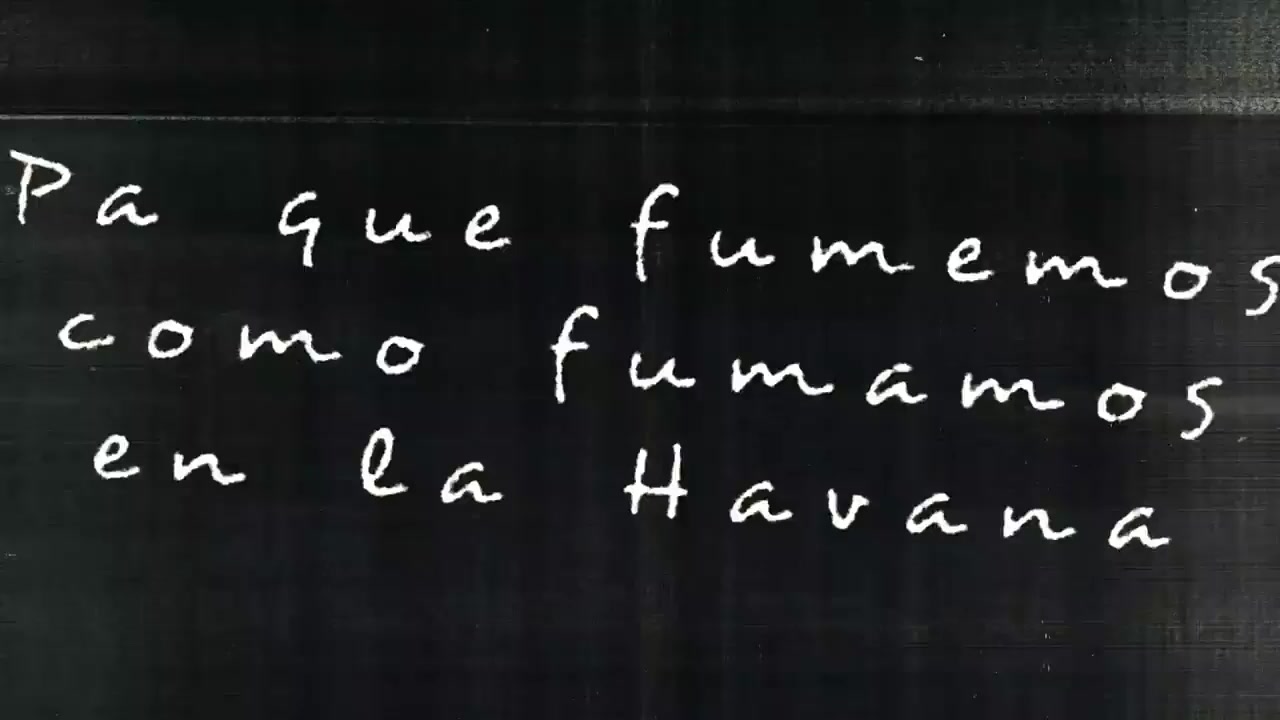 Pa que fumemos
como fumamos
en la Havana